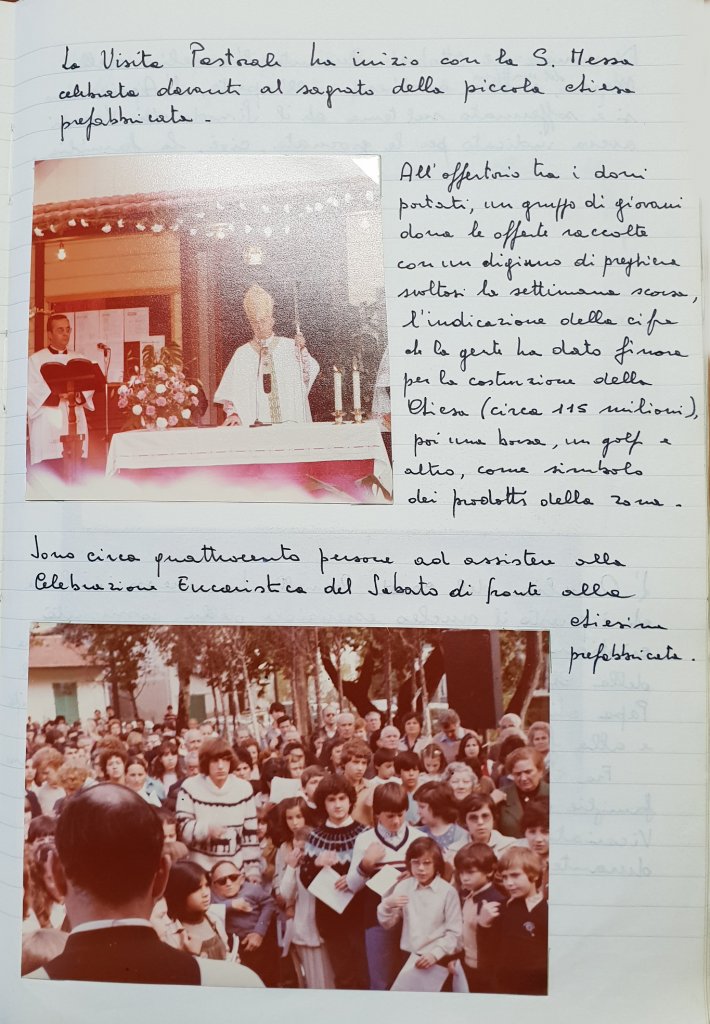 La Visita Pastorale ha inizio con la S. Messa
celebrata davanti al sagrato della piccola chiesa
prefabbricata.
All'offertorio tra i doni
portati, un gruppo di giovani
dona le offerte raccolte
con un digiuno di preghiera
svoltosi la settimana scorsa,
l'indicazione della cifra
che la gente ha dato finora
per la costruzione della
Chiesa (circa 115 milioni),
poi una borsa, un golf e
altro, come simbolo
dei prodotti della zona.
Sono circa quattrocento persone ad assistere alla
Celebrazione Eucaristica del Sabato di fronte alla
chiesina
prefabbricata.